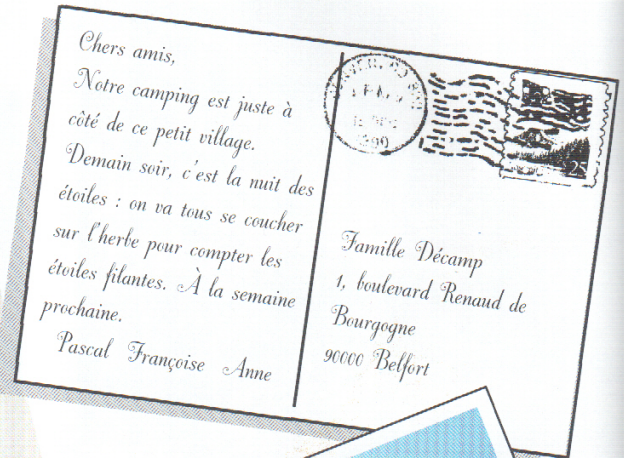 Chers amis,
Notre camping est juste à
côté de ce petit village.
Demain soir, c'est la nuit des
étoiles : on va tous se coucher
sur l'herbe pour compter les
étoiles filantes. À la semaine
prochaine.
Pascal Françoise Anne
25
Famille Décamp
1, boulevard Renaud de
Bourgogne
90000 Belfort